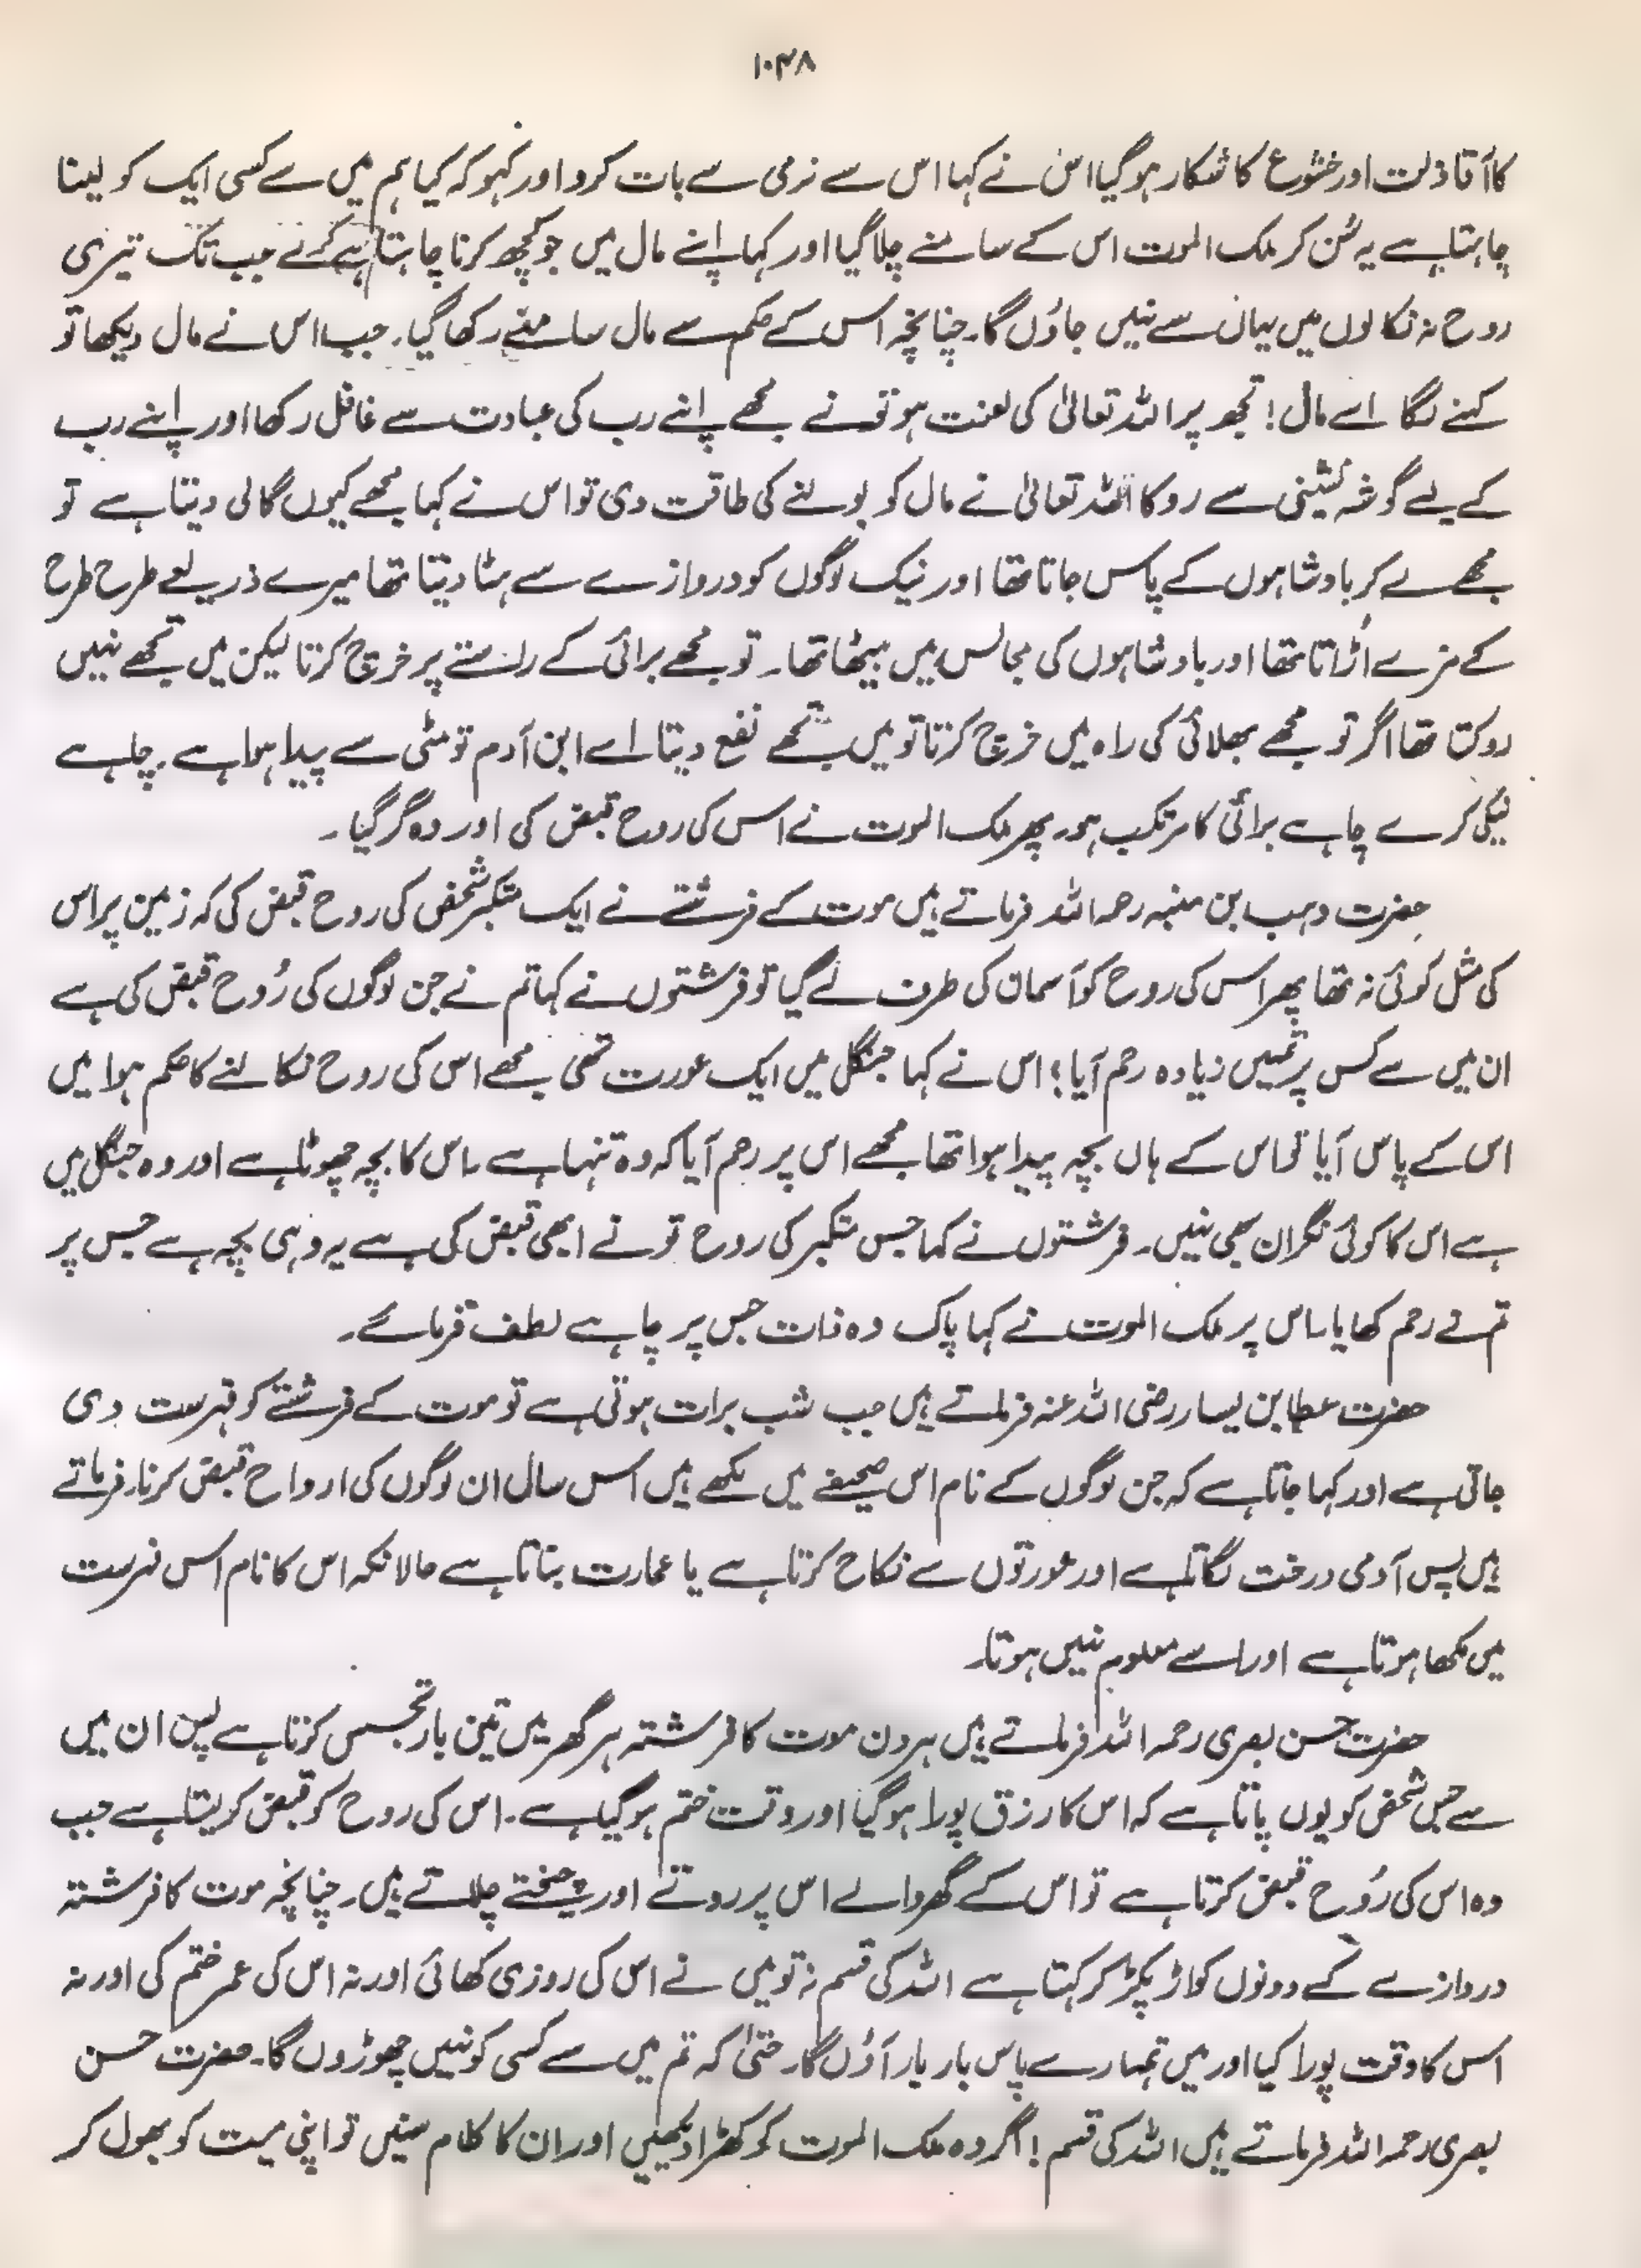 ۱۰۳۸
کا آقا ذلت اور خشوع کا شکار ہوگیا اس نے کہا اس سے نرمی سے بات کرو اور کہو کہ کیا ہم میں سے کسی ایک کو لینا
چاہتا ہے یہ سُن کر ملک الموت اس کے سامنے چلا گیا اور کہا اپنے مال میں جو کچھ کرنا چاہتا ہے کرلے جب تک تیری
روح نہ نکالوں میں یہاں سے نہیں جاؤں گا۔ چنانچہ اس کے حکم سے مال سامنے رکھا گیا۔ جب اس نے مال دیکھا تو
کہنے لگا اے مال! تجھ پر اللہ تعالیٰ کی لعنت ہو تو نے مجھے اپنے رب کی عبادت سے غافل رکھا اور اپنے رب
کے لیے گوشہ نشینی سے روکا اللہ تعالیٰ نے مال کو بولنے کی طاقت دی تو اس نے کہا مجھے کیوں گالی دیتا ہے تو
مجھے لے کر بادشاہوں کے پاس جاتا تھا اور نیک لوگوں کو دروازے سے ہٹا دیتا تھا میرے ذریعے طرح طرح
کے مزے اُڑاتا تھا اور بادشاہوں کی مجالس میں بیٹھا تھا۔ تو مجھے برائی کے راستے پر خرچ کرتا لیکن میں تجھے نہیں
روکتا تھا اگر تو مجھے بھلائی کی راہ میں خرچ کرتا تو میں تجھے نفع دیتا اے ابن آدم تو مٹی سے پیدا ہوا ہے۔ چاہے
نیکی کرے چاہے برائی کا مرتکب ہو۔ پھر ملک الموت نے اس کی روح قبض کی اور وہ گر گیا۔
حضرت وہب بن منبہ رحمہ اللہ فرماتے ہیں موت کے فرشتے نے ایک متکبر شخص کی روح قبض کی کہ زمین پر اس
کی مثل کوئی نہ تھا پھر اس کی روح کو آسمان کی طرف لے گیا تو فرشتوں نے کہا تم نے جن لوگوں کی رُوح قبض کی ہے
ان میں سے کس پر تمہیں زیادہ رحم آیا؟ اس نے کہا جنگل میں ایک عورت تھی مجھے اس کی روح نکالنے کا حکم ہوا میں
اس کے پاس آیا تو اس کے ہاں بچہ پیدا ہوا تھا مجھے اس پر رحم آیا کہ وہ تنہا ہے اس کا بچہ چھوٹا ہے اور وہ جنگل میں
ہے اس کا کوئی نگران بھی نہیں۔ فرشتوں نے کہا جس متکبر کی روح تو نے ابھی قبض کی ہے یہ وہی بچہ ہے جس پر
تم نے رحم کھایا۔ اس پر ملک الموت نے کہا پاک وہ ذات جس پر چاہے لطف فرمائے۔
حضرت عطا بن یسار رضی اللہ عنہ فرماتے ہیں جب شب برات ہوتی ہے تو موت کے فرشتے کو فہرست دی
جاتی ہے اور کہا جاتا ہے کہ جن لوگوں کے نام اس صحیفے میں لکھے ہیں اس سال ان لوگوں کی ارواح قبض کرنا۔ فرماتے
ہیں پس آدمی درخت لگاتا ہے اور عورتوں سے نکاح کرتا ہے یا عمارت بناتا ہے حالانکہ اس کا نام اس فہرست
میں لکھا ہوتا ہے اور اسے معلوم نہیں ہوتا۔
حضرت حسن بصری رحمہ اللہ فرماتے ہیں ہر دن موت کا فرشتہ ہر گھر میں تین بار تجسس کرتا ہے پس ان میں
سے جس شخص کو یوں پاتا ہے کہ اس کا رزق پورا ہوگیا اور وقت ختم ہوگیا ہے۔ اس کی روح کو قبض کرلیتا ہے جب
وہ اس کی رُوح قبض کرتا ہے تو اس کے گھر والے اس پر روتے اور چیختے چلاتے ہیں۔ چنانچہ موت کا فرشتہ
دروازے کے دونوں کواڑ پکڑ کر کہتا ہے اللہ کی قسم نہ تو میں نے اس کی روزی کھائی اور نہ اس کی عمر ختم کی اور نہ
اس کا وقت پورا کیا اور میں تمہارے پاس بار بار آؤں گا۔ حتیٰ کہ تم میں سے کسی کو نہیں چھوڑوں گا۔ حضرت حسن
بصری رحمہ اللہ فرماتے ہیں اللہ کی قسم! اگر وہ ملک الموت کو کھڑا دیکھیں اور ان کا کلام سنیں تو اپنی میت کو بھول کر